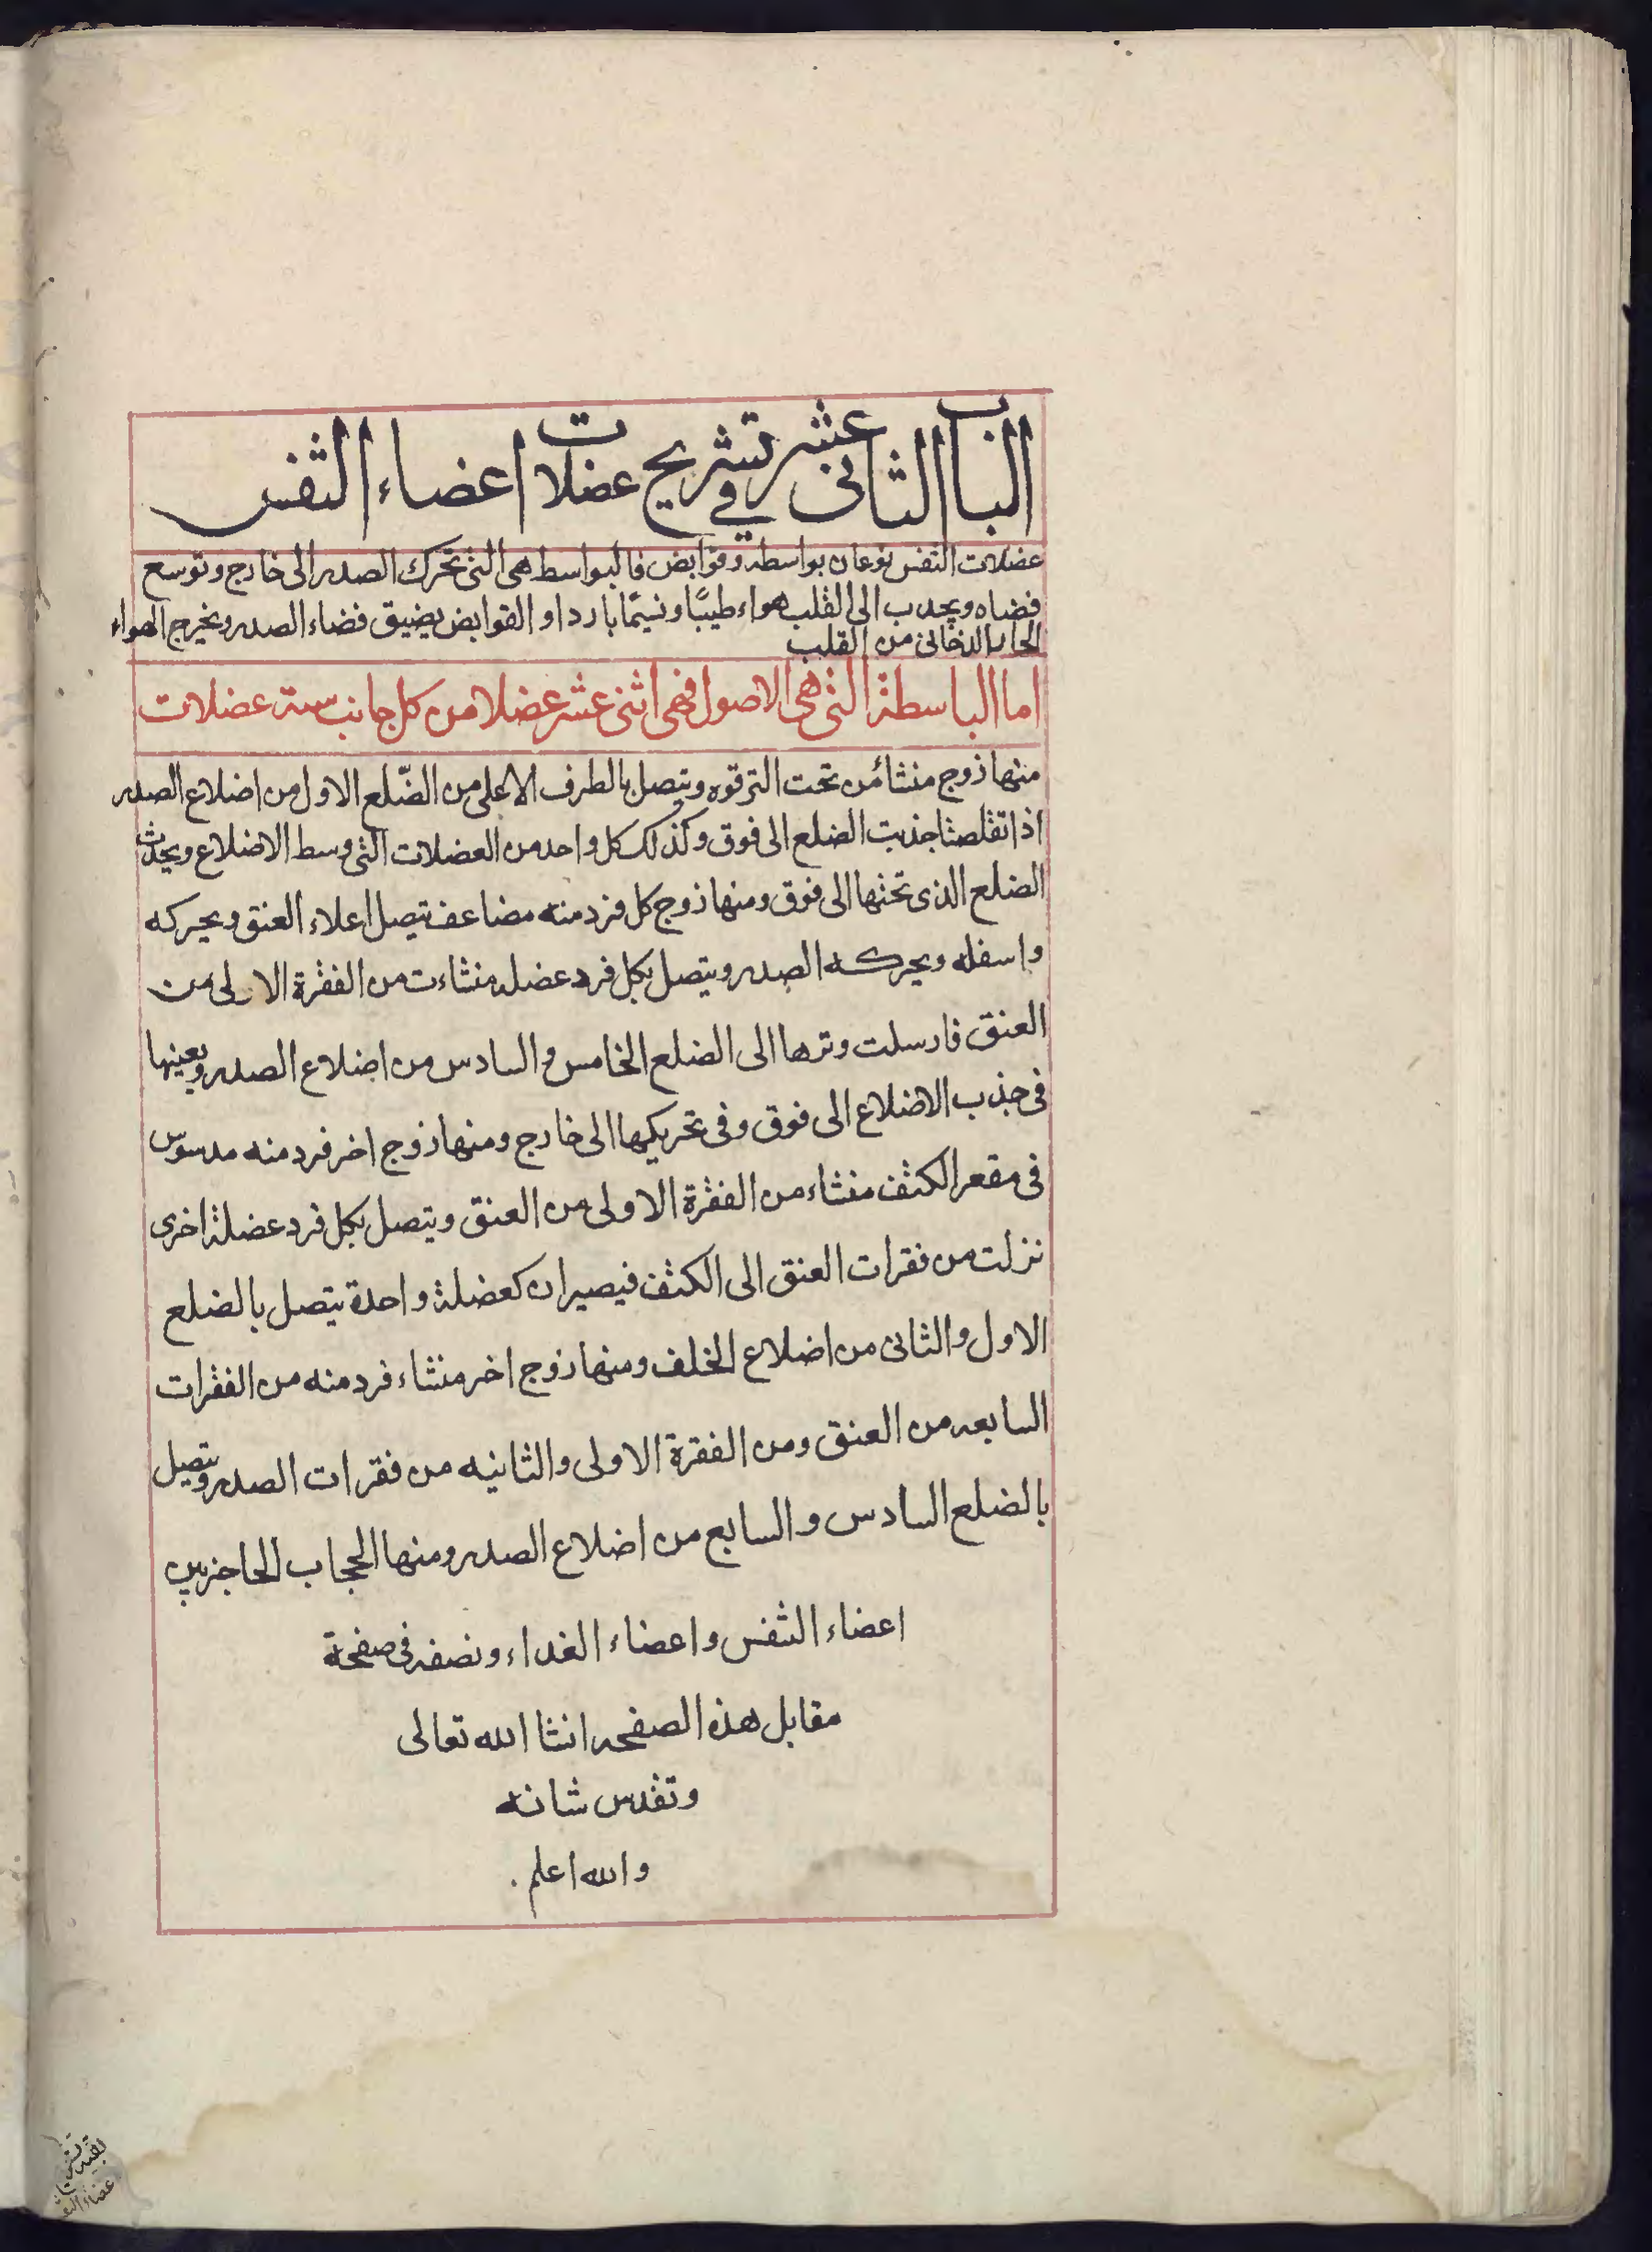 الباب الثانى عشر فى تشريح عضلات اعضاء التنفس
عضلات التنفس نوعان بواسطه وقوابض فالبواسط هى التى تحرك الصدر الى خارج وتوسع
فضاه ويجدب الى القلب هواء طيبًا ونسيمًا باردا و القوابض يضيق فضاء الصدر ويخرج الهواء
الحار الدخانى من القلب
اما الباسطة التى هى الاصول فهى اثنى عشر عضلا من كل جانب ستة عضلات
منها زوج منشائه من تحت الترقوه ويتصل بالطرف الاعلى من الضّلع الاول من اضلاع الصدر
اذا تقلصتا جذبت الضلع الى فوق وكذلك كل واحد من العضلات التى وسط الاضلاع ويجذب
الضلع الذى تحتها الى فوق ومنها زوج كل فرد منه مضاعف تيصل اعلاء العنق ويحركه
واسفله ويحركه الصدر ويتصل بكل فرد عضله منشاءت من الفقرة الاولى من
العنق فارسلت وترها الى الضلع الخامس والسادس من اضلاع الصدر ويعينها
فى جذب الاضلاع الى فوق وفى تحريكها الى خارج ومنها زوج اخر فرد منه مدسوس
فى مقعر الكتف منشاء من الفقرة الاولى من العنق ويتصل بكل فرد عضلة اخرى
نزلت من فقرات العنق الى الكتف فيصيران كعضلة واحدة يتصل بالضلع
الاول والثانى من اضلاع الخلف ومنها زوج اخر منشاء فرد منه من الفقرات
السابعه من العنق ومن الفقرة الاولى والثانيه من فقرات الصدر وتيصل
بالضلع السادس والسابع من اضلاع الصدر ومنها الحجاب الحاجز بين
اعضاء التنفس واعضاء الغداء ونصفه فى صفحة
مقابل هذه الصفحه انشا الله تعالى
وتقدس شانه
والله اعلم.